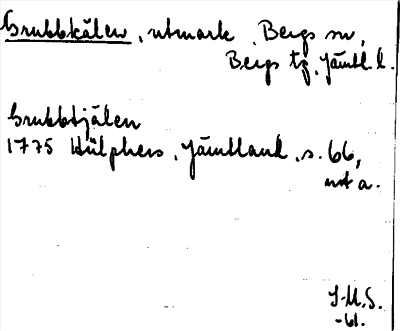 Grubbkälen, utmark, Bergs sn,
Bergs tg, Jämtl. l.
Grubbtjälen
1775 Hülphers, Jämtland, s. 66,
not a.
I.M.S.
-61.